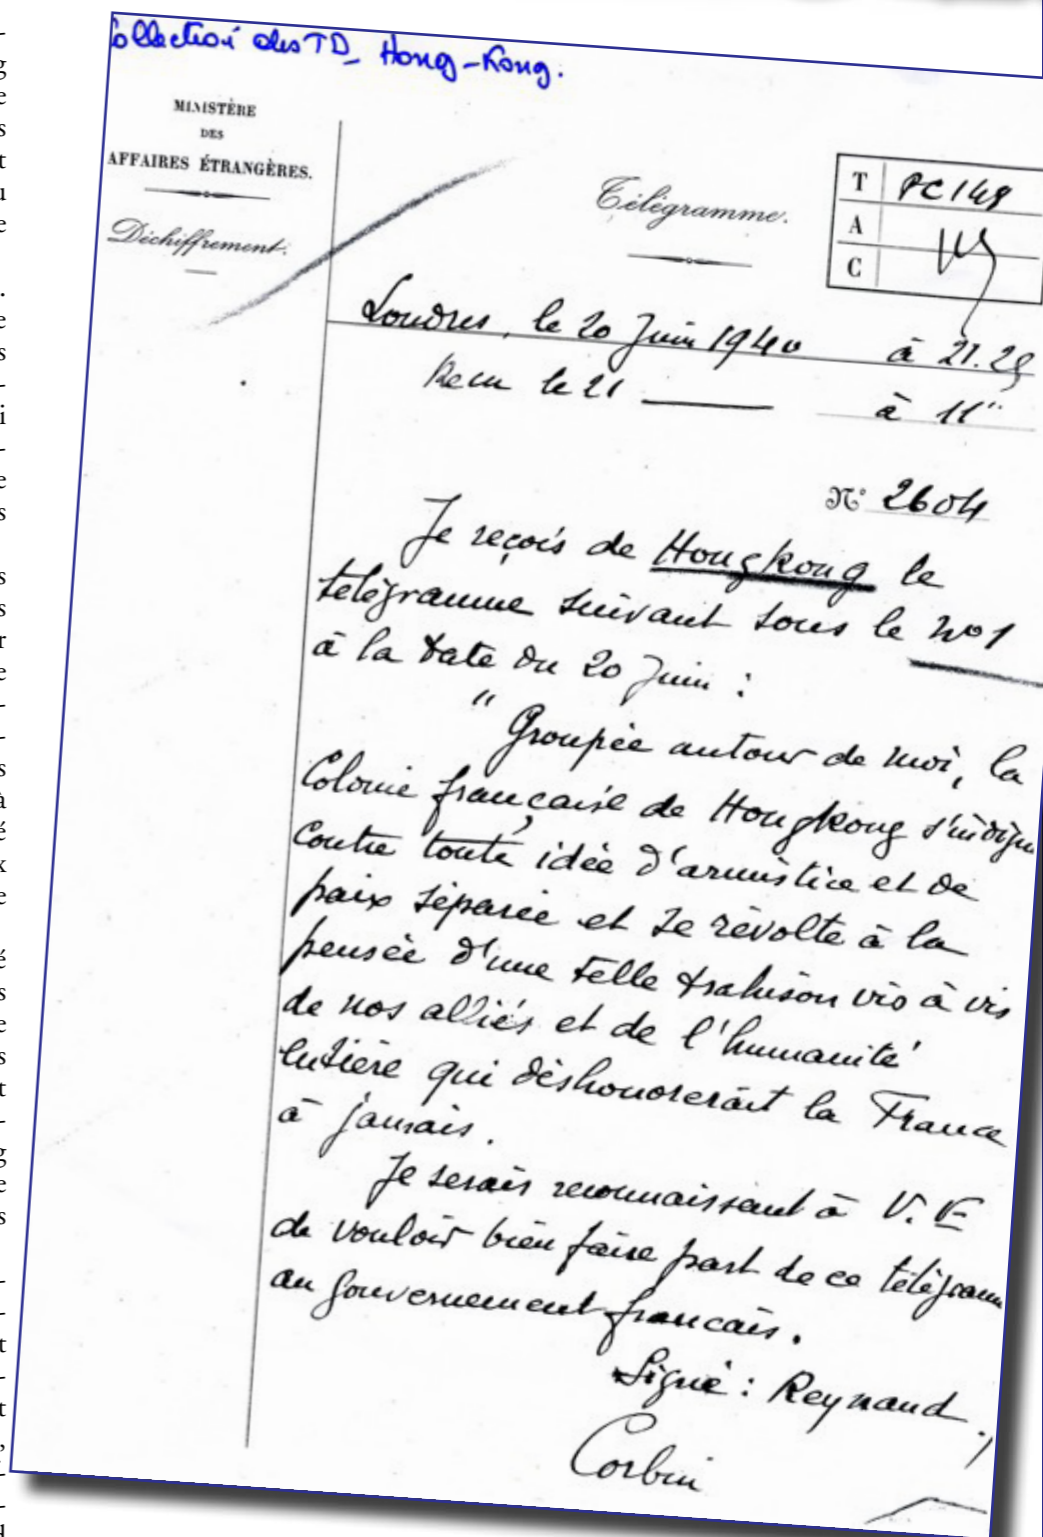 Collection des TD_ Hong-Kong.
MINISTÈRE
DES
AFFAIRES ÉTRANGÈRES.
Déchiffrement.
Télégramme.
T PC148
A
C
Londres, le 20 Juin 1940 à 21.25
Recu le 21 à 11"
N° 2604
Je reçois de Hongkong le
télégramme suivant sous le N° 1
à la date du 20 Juin :
"Groupée autour de moi, la
Colonie française de Hongkong s'indigne
contre toute idée d'armistice et de
paix séparée et se révolte à la
pensée d'une telle trahison vis à vis
de nos alliés et de l'humanité
entière qui déshonorerait la France
à jamais.
Je serais reconnaissant à V. E
de vouloir bien faire part de ce télégramme
au Gouvernement français.
Signé : Reynaud
Corbin